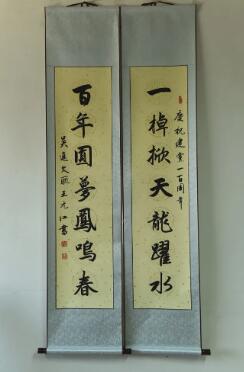 慶祝建党一百周年
一棹掀天龍躍水
百年圓夢鳳鳴春
王元江書